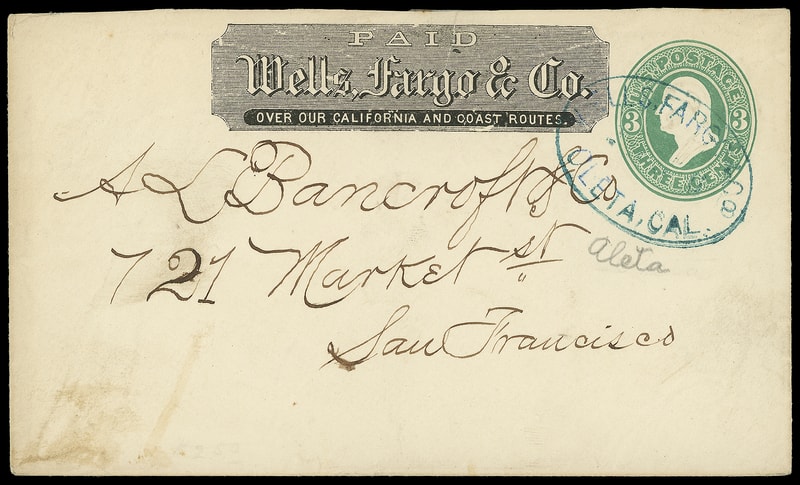 PAID
Wells, Fargo & Co.
OVER OUR CALIFORNIA AND COAST ROUTES.
POSTAGE
3 3
THREE CENTS
WELLS, FARGO & CO
ALETA, CAL.
A L Bancroft & Co
721 Market st
Aleta
San Francisco